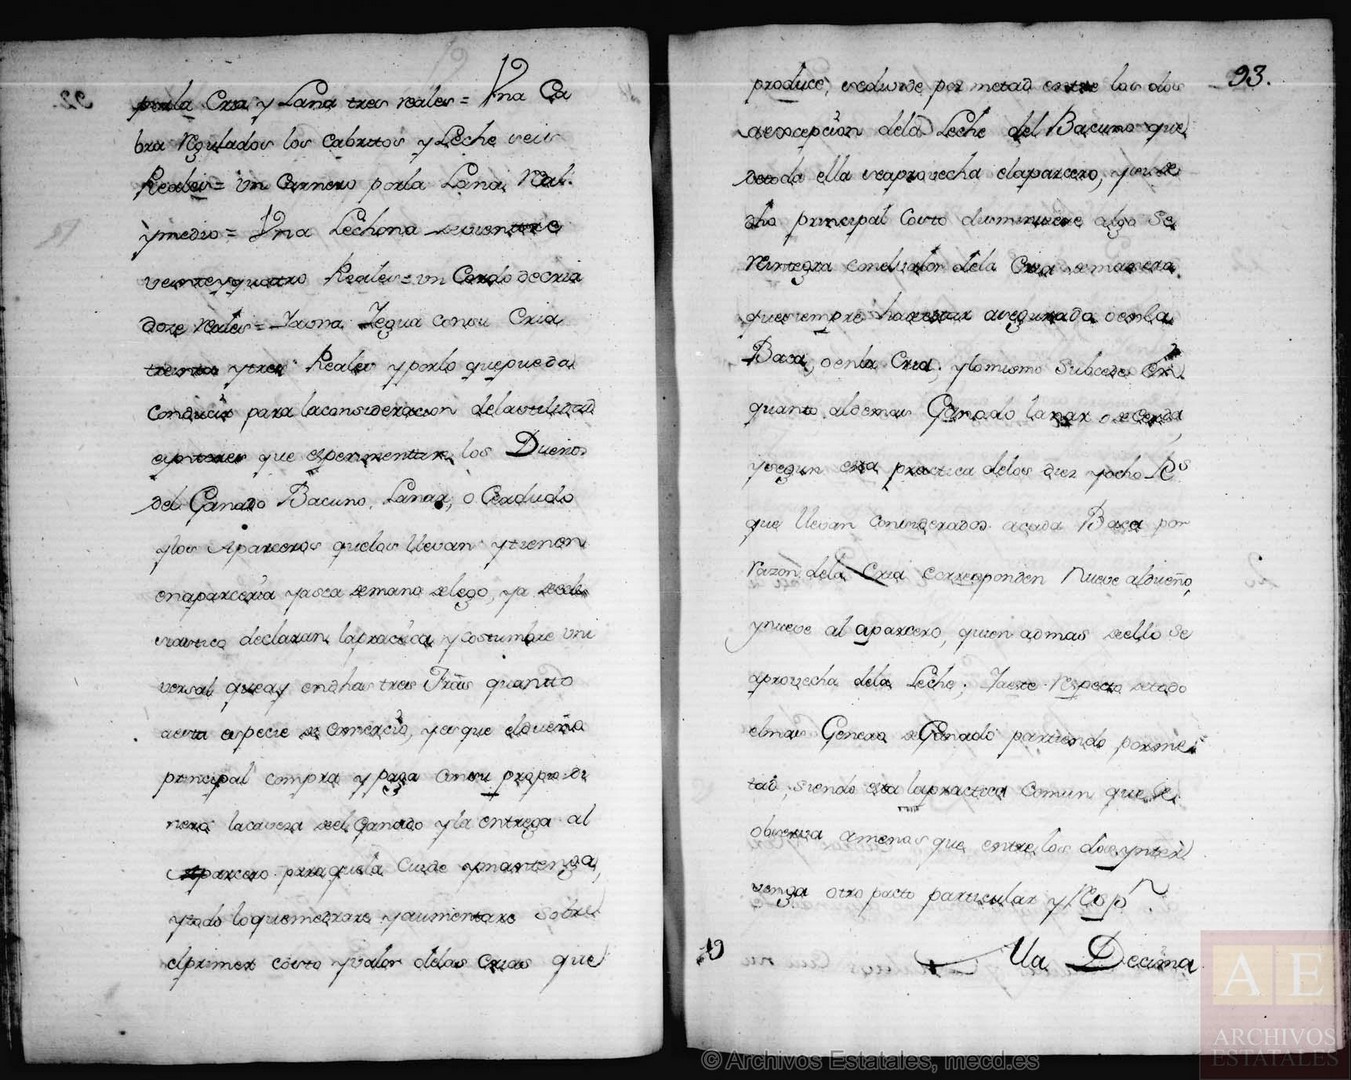 porla Cria y Lana tres reales = Una Ca
bra Regulados los Cabritos y Leche seis
Reales = Un Carnero porla Lana Real
ymedio = Una Lechona devientre
veinteyquatro Reales = un Cerdo de cria
doze Reales = Yauna Yegua consu Cria
treinta ytres Reales yporlo quepueda
Conducir para laconsideracion delautilidad
que esperimentan los Dueños
del Ganado Bacuno, Lanar, o Cerdudo
ylos Aparceros quelos llevan ytienen
enaparceria yasea demano delego, ya decle
siastico declaran lapractica ycostumbre uni
versal queay endhas tres Frãs quantto
aesta especie de Comercio, yes que eldueño
principal compra y paga Consu propio di
nero lacaveza del Ganado yla entrega al
Aparcero paraquela Cuide ymantenga,
ytodo loquemejorare yaumentare sobre
elprimer costo yvalor delas Crias que
93.
produce, sedivide por metad entre los dos
aexcepcion dela Leche del Bacuno que
detoda ella seaprovecha elaparcero, ysi de
dho principal Costo disminuiere algo Se
Reintegra conelvalor dela Cria demanera
quesiempre haestar asegurado oenla
Baca, oenla Cria, ylomismo Subcede En
quanto aldemas Ganado lanar odeCerda,
ysegun esta practica delos diez yocho Rs
que llevan Considerados acada Baca por
razon dela Cria corresponden Nueve aldueño,
ynueve al aparcero, quien ademas dello Se
aprovecha dela Leche; Yaeste Respecto detodo
elmas Genero deGanado partiendo porme
tad, siendo esta lapractica Comun que Se
observa amenos que entre los dos ynter
venga otro pacto particular y Resp.
19 Ala Decima
© Archivos Estatales, mecd.es
AE
ARCHIVOS
ESTATALES